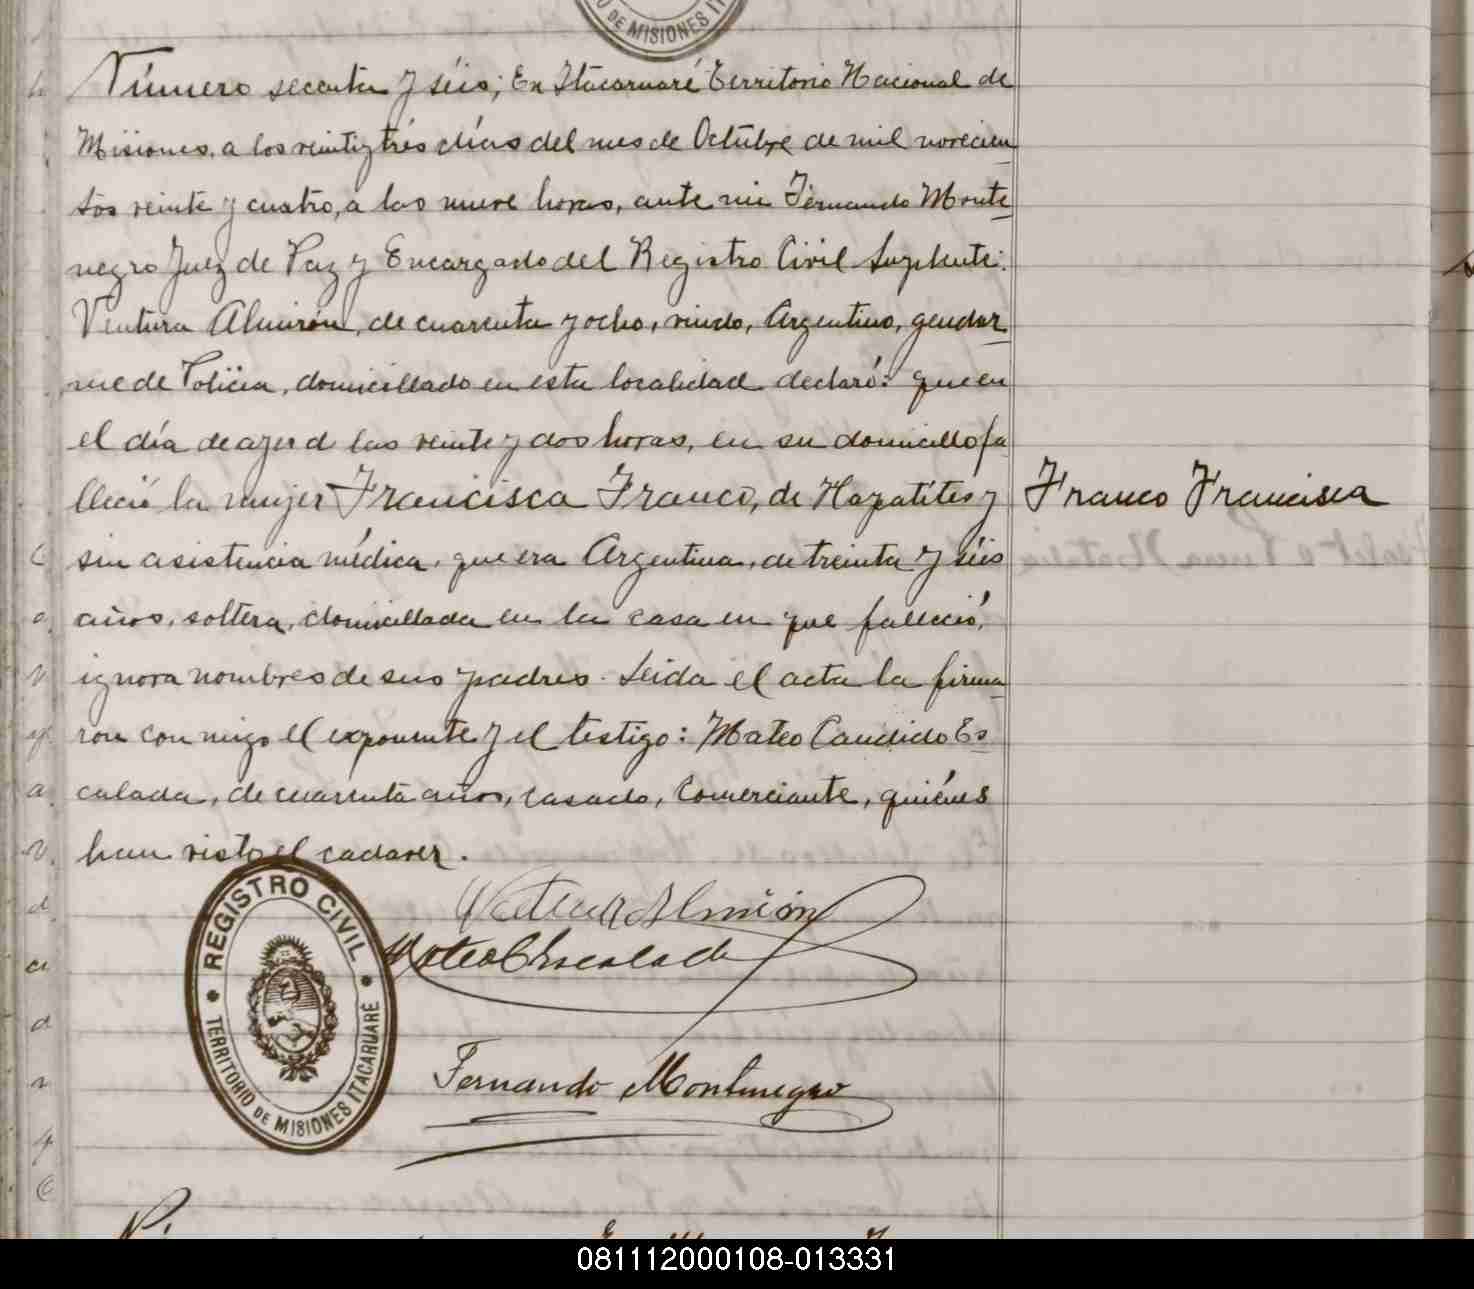 O DE MISIONES IT
Número secenta y séis; En Itacaruaré Territorio Nacional de
Misiones, a los veintiy trés días del mes de Octubre de mil novecien
tos veinte y cuatro, a las nueve horas, ante mi Fernando Monte
negro Juez de Paz y Encargado del Registro Civil Suplente:
Ventura Almirón, de cuarenta y ocho, viudo, Argentino, gendar
me de Policia, domicillado en esta localidad declaró: que en
el día de ayer a las veinte y dos horas, en su domicillo fa
lleció la mujer Francisca Franco, de Hapatítes y
Franco Francisca
sin asistencia médica, que era Argentina, de treinta y séis
años, soltera, domicillada en la casa en que falleció,
ignora nombres de sus padres. Leida el acta la firma
ron con migo el exponente y el testigo: Mateo Candido Es
calada, de cuarenta años, casado, Comerciante, quiénes
han visto el cadaver.
REGISTRO CIVIL
TERRITORIO DE MISIONES ITACARUARÉ
Ventura Almirón
Mateo C Escalada
Fernando Montenegro
081112000108-013331